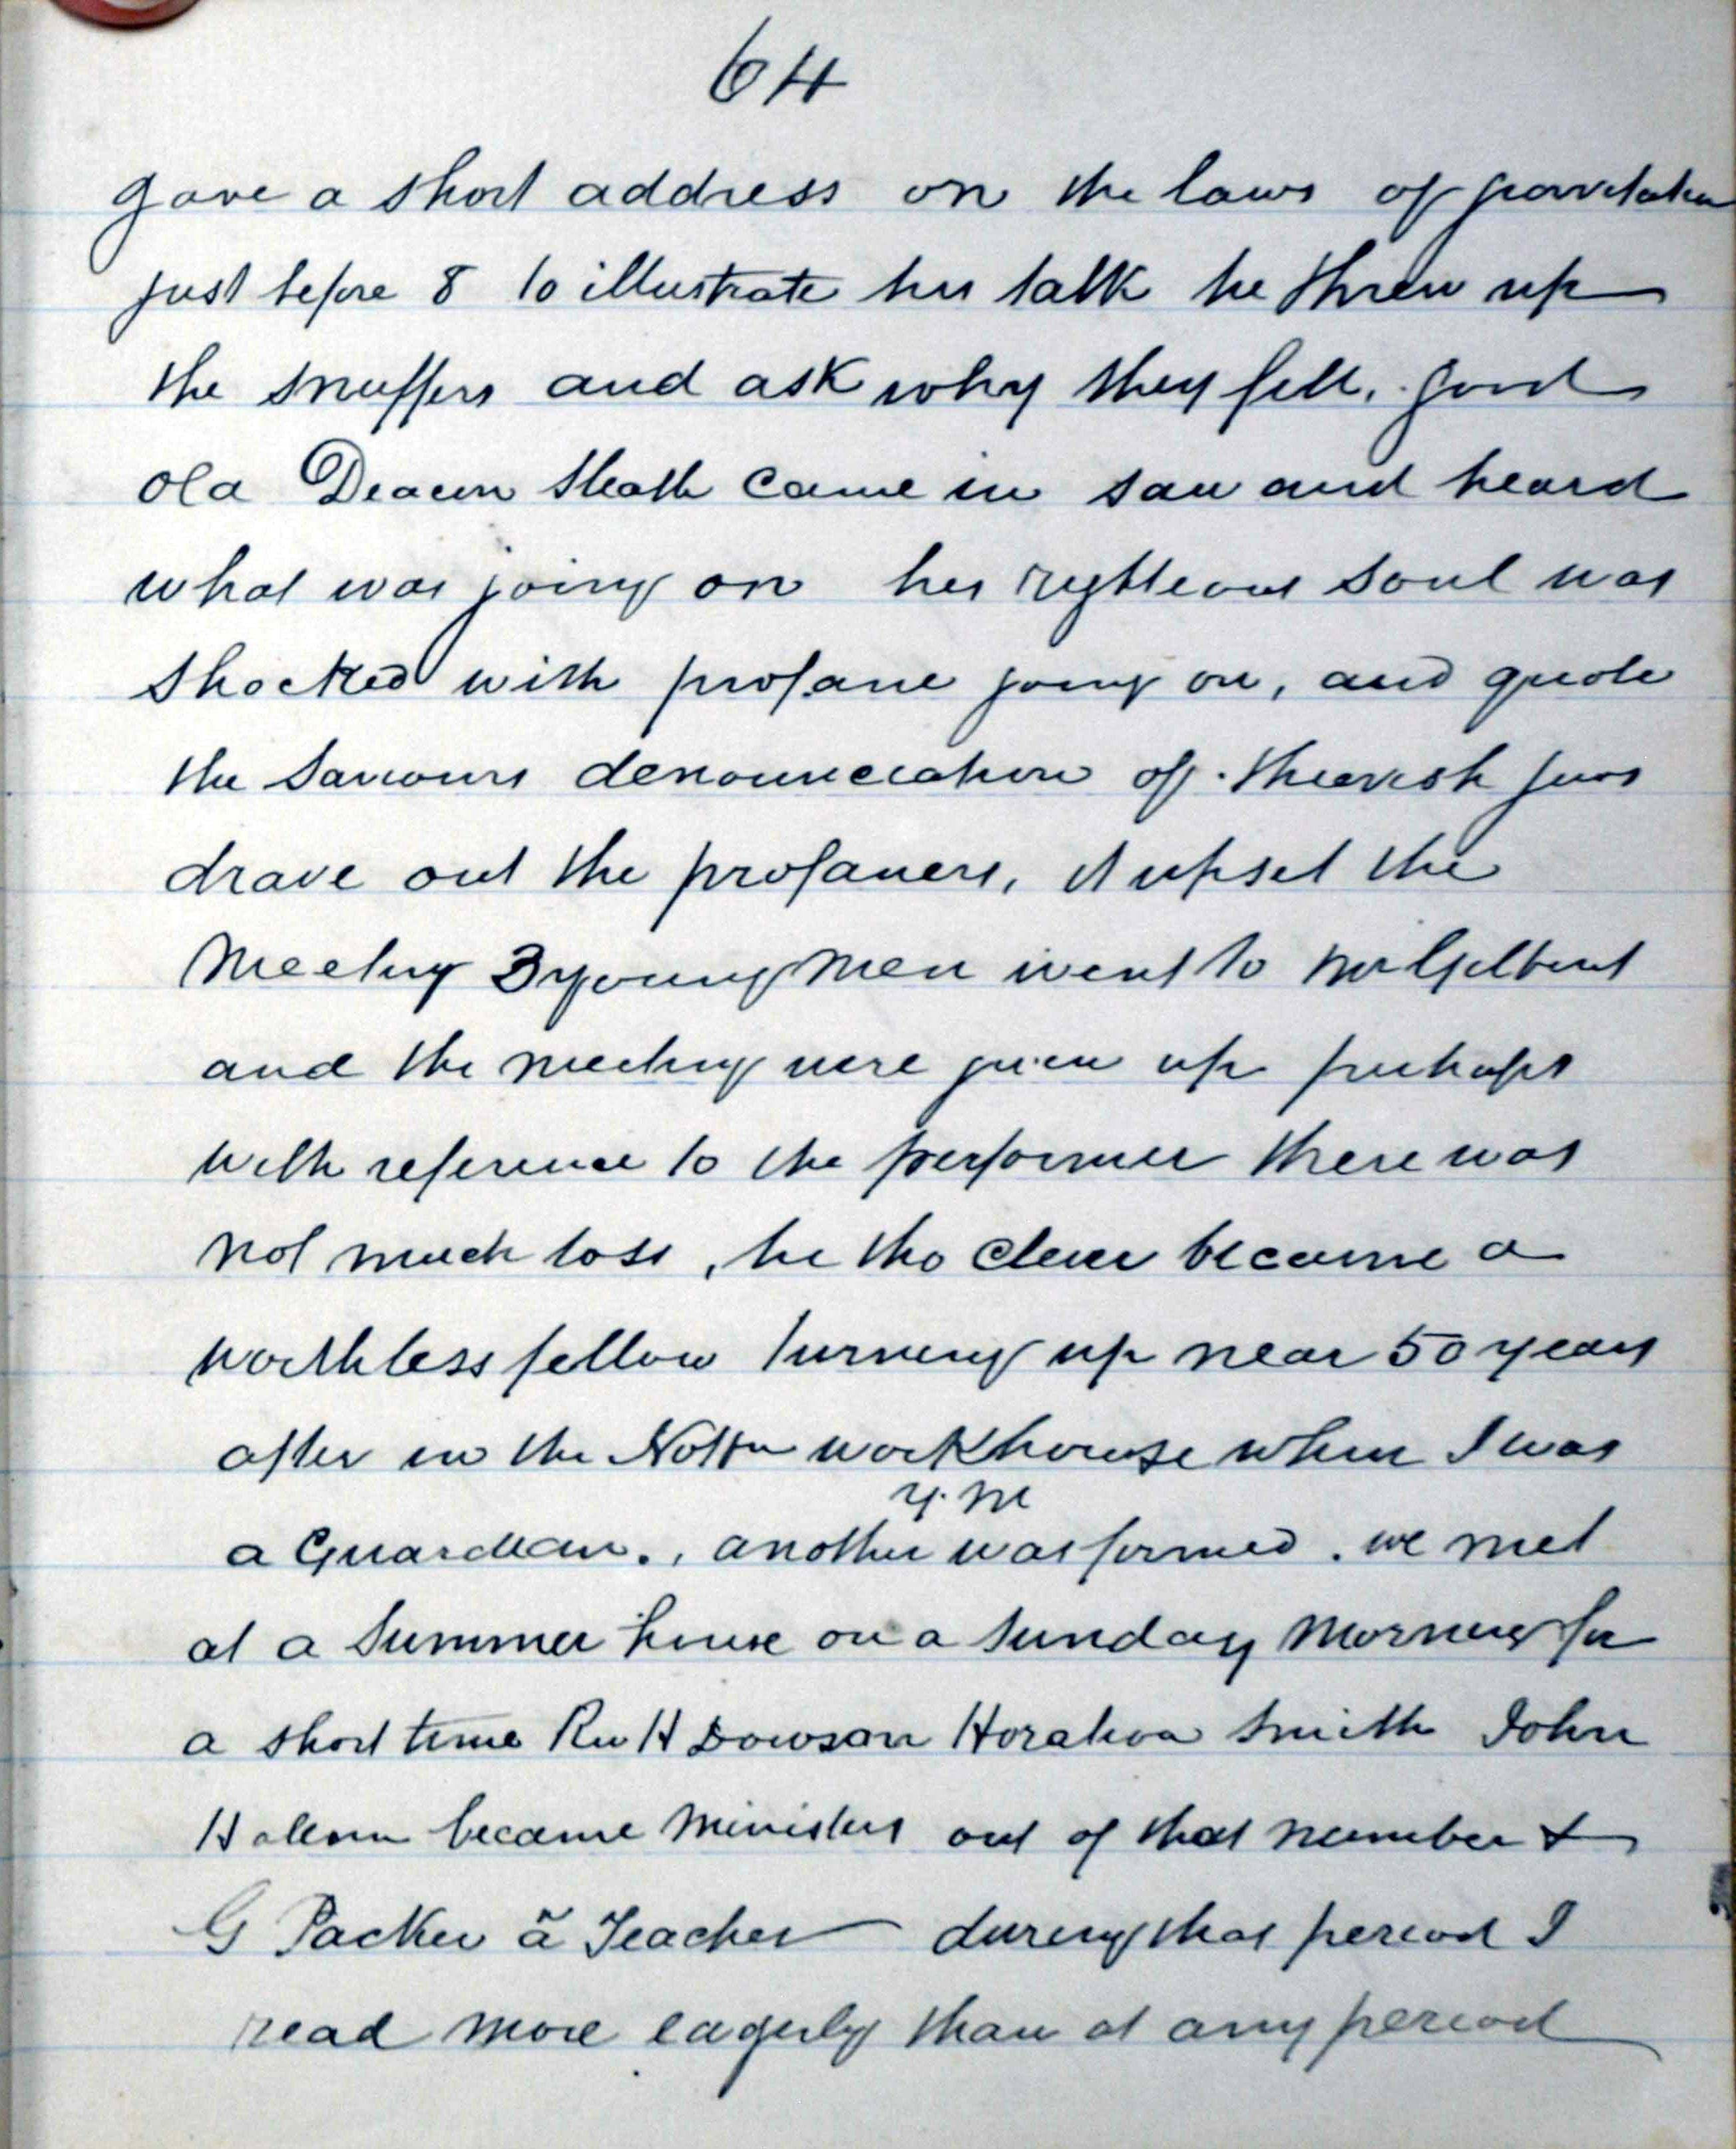 64
gave a short address on the laws of gravitation
just before 8 to illustrate his talk he threw up
the snuffers and ask why they fell, good
old Deacon Heath came in saw and heard
what was going on his righteous soul was
shocked with profane going on, and quote
the Saviours denounciation of thievish Jews
drave out the profaners, it upset the
Meeting 3 young Men went to Mr Gilbert
and the meeting were given up perhaps
with reference to the performer there was
not much loss, he tho clever became a
worthless fellow turning up near 50 years
after in the Nottm workhouse when I was
y. m
a Guardian., another was formed. we met
at a Summer house on a Sunday Morning for
a short time Rev H Dowson Horatio Smith John
became Ministers out of that number &
G Packer a Teacher during that period I
read more eagerly than at any period